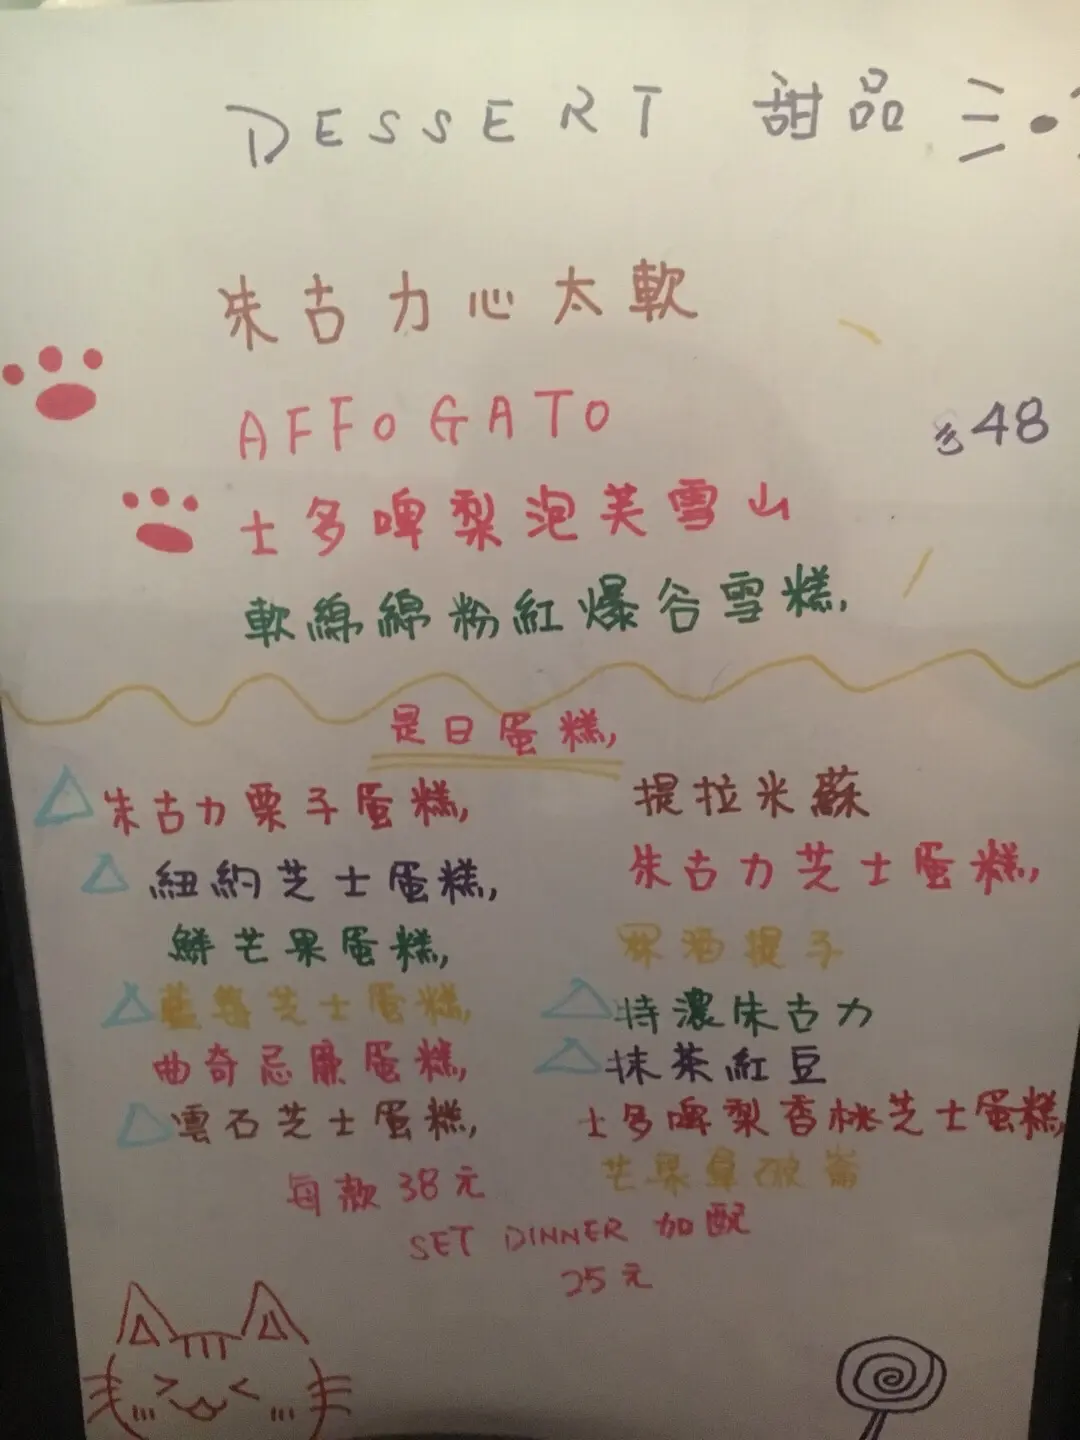 DESSERT 甜品
朱古力心太軟
AFFOGATO
$48
士多啤梨泡芙雪山
軟綿綿粉紅爆谷雪糕
是日蛋糕
朱古力栗子蛋糕
紐約芝士蛋糕
鮮芒果蛋糕
藍莓芝士蛋糕
曲奇忌廉蛋糕
雲石芝士蛋糕
提拉米蘇
朱古力芝士蛋糕
酒提子
特濃朱古力
抹茶紅豆
士多啤梨香桃芝士蛋糕
芒果拿破崙
每款38元
SET DINNER 加配
25元